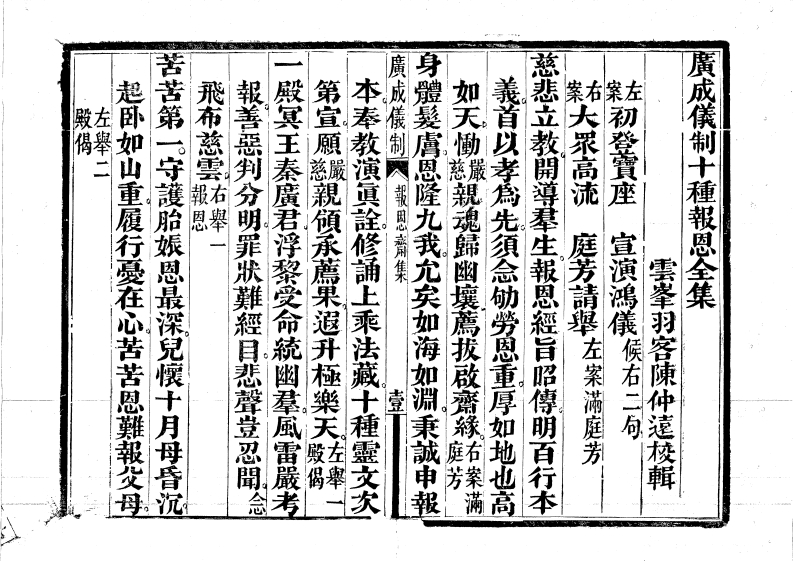 廣成儀制十種報恩全集
雲峯羽客陳仲遠校輯
左案初登寶座　宣演鴻儀候右二句
右案大眾高流　庭芳請舉左案滿庭芳
慈悲立教。開導羣生。報恩經旨昭傳。明百行本
義。首以孝為先。須念劬勞恩重。厚如地也高
如天。慟嚴慈親。魂歸幽壤。薦拔啟齋緣。右案滿庭芳
身體髮膚。恩隆九我。允矣如海如淵。秉誠申報
廣成儀制　報恩齋集　壹
本。奉教演眞詮。修誦上乘法藏。十種靈文次
第宣。願嚴慈親領承薦果。遐升極樂天。左舉一殿偈
一殿冥王秦廣君。浮黎受命統幽羣。風雷嚴考
報。善惡判分明。罪狀難經目。悲聲豈忍聞。念
飛布慈雲。右舉一報恩
苦苦第一。守護胎娠恩最深。兒懷十月母昏沉。
起卧如山重。履行憂在心。苦苦恩難報父母。
左舉二殿偈